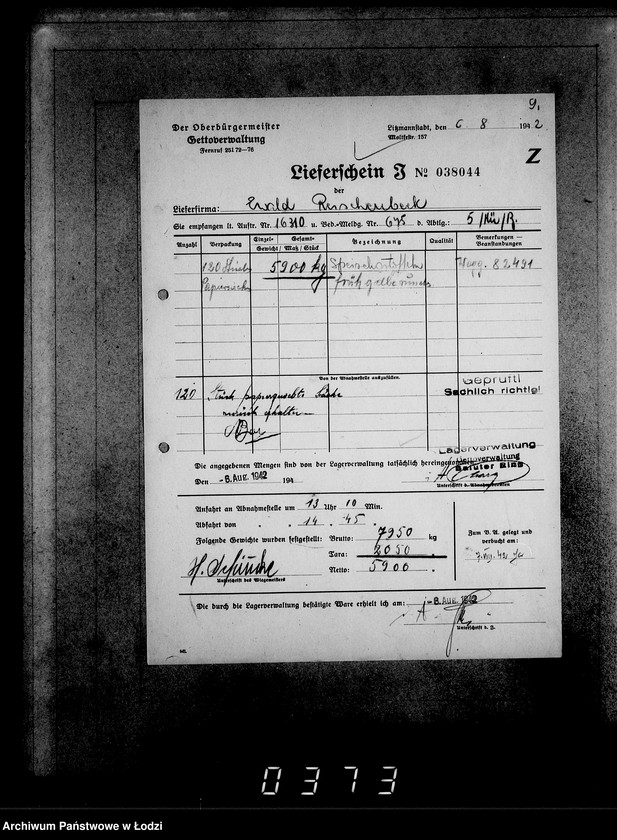 9,
Der Oberbürgermeister
Gettoverwaltung
Fernruf 251 72—76
Litzmannstadt, den 6 8 1942
Moltkestr. 157
Z
Lieferschein J № 038044
der
Lieferfirma: Ewald
Sie empfangen lt. Auftr. Nr. 16310 u. Bed.-Meldg. Nr. 675 d. Abtlg.: 5/Kü/R.
Anzahl Verpackung Einzel- Gesamt- Gewicht / Maß / Stück Bezeichnung Qualität Bemerkungen — Beanstandungen
120 5900 kg Wagg. 82491
früh gelbe
Von der Abnahmestelle auszufüllen.
120 Stück Säcke
zurück erhalten
Geprüft!
Sachlich richtig!
Lagerverwaltung
Gettoverwaltung
Die angegebenen Mengen sind von der Lagerverwaltung tatsächlich hereingenommen
Den -8. AUG. 1942 194
Unterschrift d. Abnahmestellen
Anfahrt an Abnahmestelle um 13 Uhr 10 Min.
Abfahrt von " " 14 " 45 "
Folgende Gewichte wurden festgestellt: Brutto: 7950 kg
Tara: 2050 "
Netto: 5900 "
Unterschrift des Wiegemeisters
Zum V. A. gelegt und
verbucht am:
7. VIII. 42
Die durch die Lagerverwaltung bestätigte Ware erhielt ich am: -8. AUG. 1942
Unterschrift d. L.
0373
Archiwum Państwowe w Łodzi